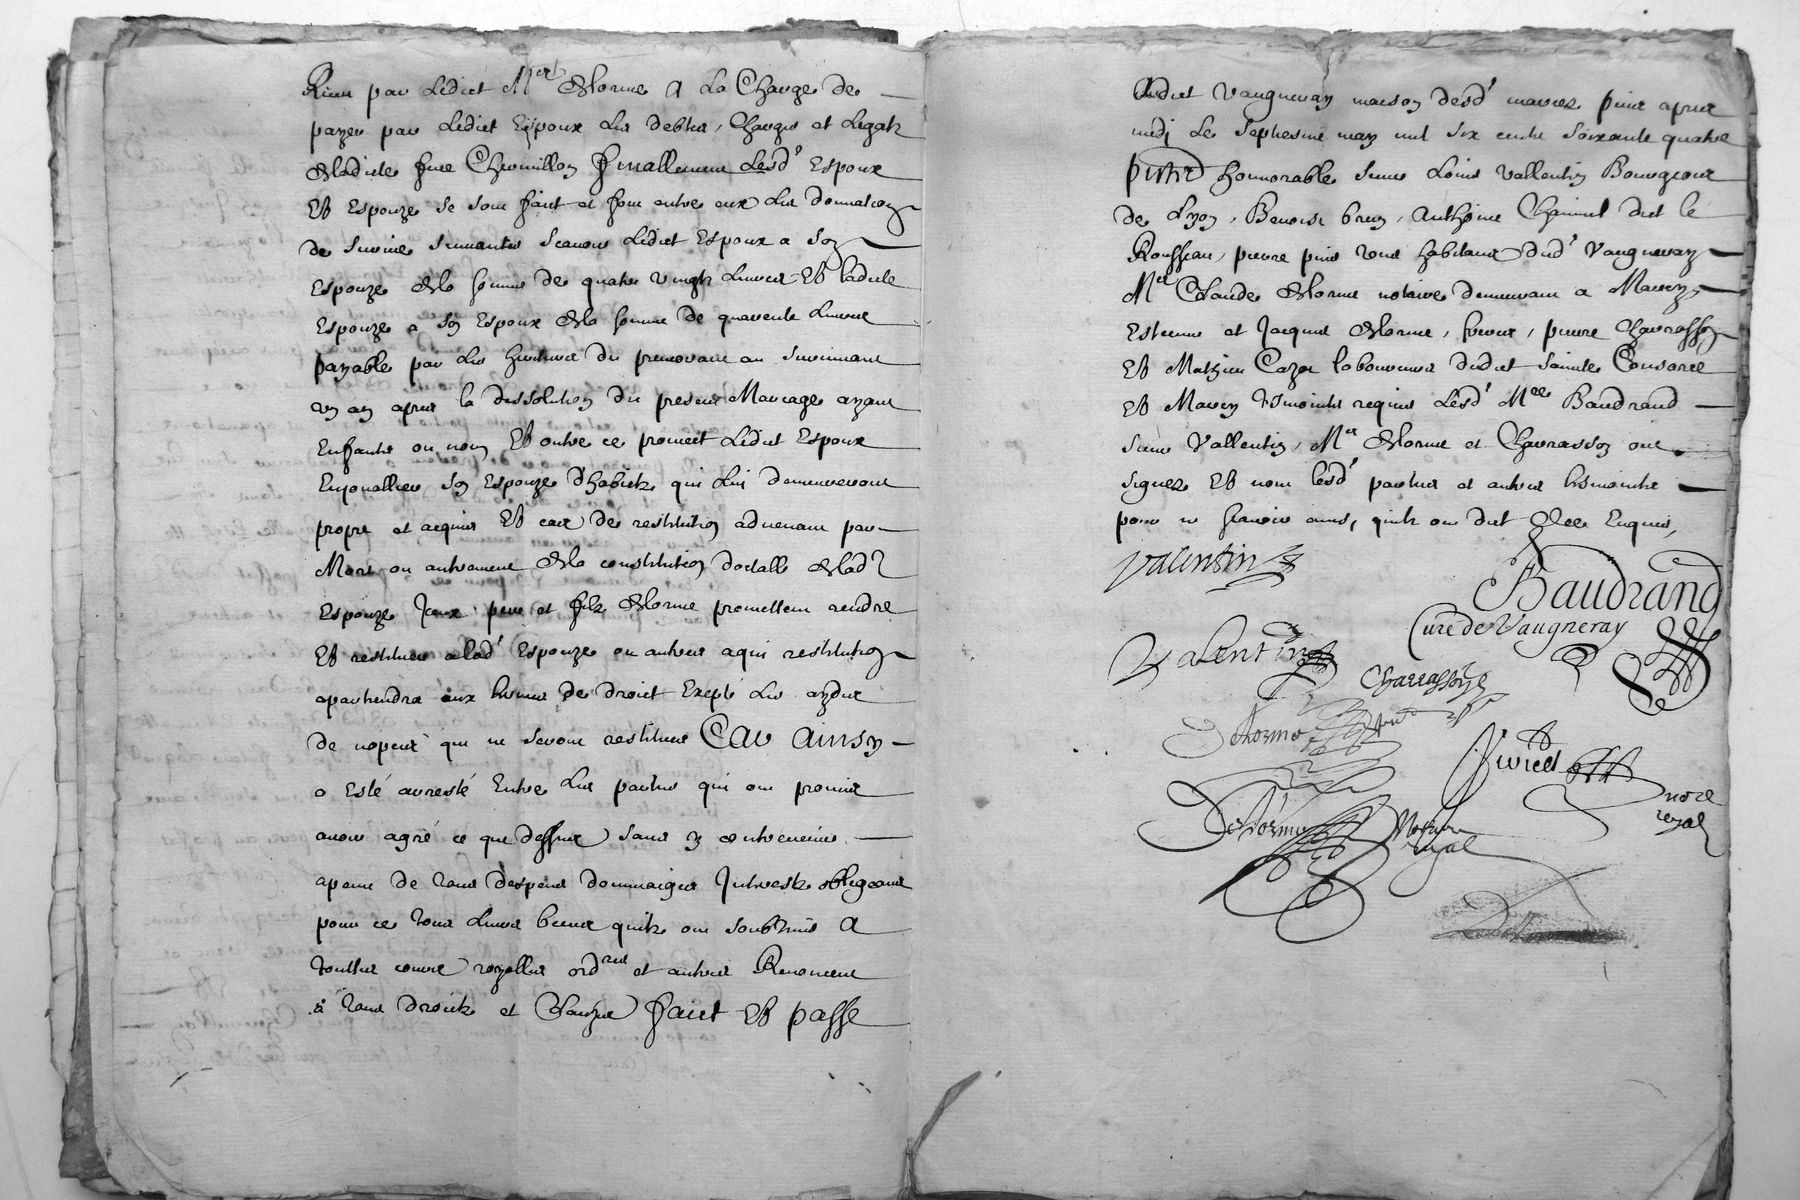 Rien par Ledict Mre Delorme A La Charge de
payer par Ledict Espoux Les debtes, Charges et Legatz
de ladicte feue Chermillon finallement Lesd' Espoux
Et Espouze se sont faict et font entre eux Les donnation
de survie suivantes scavoir Ledict Espoux a son
Espouze de la somme de quatre vingtz Livres Et ladicte
Espouze a son Espoux de la somme de quarente Livres
payable par Les heritiers du premourant au survivant
un an apres la dissolution du present Mariage ayant
Enfants ou non Et outre ce promect Ledict Espoux
Enjoualler son Espouze d'habictz qui Luy demeureront
propre et acquis Et cas de restitution advenant par
Mort ou autrement de la constitution dotalle de lad'
Espouze Iceux pere et filz Delorme promettent rendre
Et restituer a lad' Espouze ou autres a qui restitution
apartiendra aux termes de droict Excepté Les aydes
de nopces qui ne seront restitues Car ainsy
a Esté arresté Entre Les parties qui ont promis
avoir agré ce que dessus sans y contrevenir
a peine de tous despens dommaiges Interestz obligeant
pour ce tous Leurs biens quilz ont soubzmis A
touttes cours royalles ordres et autres Renonceant
à tous droictz et Clauses faict Et passe
Audict Vaugneray maison desd' mariez apres
midj Le septiesme may mil six centz soixante quatre
pntz honnorable sieur Louis Vallentin Bourgeois
de Lyon, Benoist brun, Anthoine Chainel dict le
Rousseau, pierre tous habitans dud' Vaugneray
Mre Claude Delorme notaire demeurant a Marcy
Estienne et Jacques Delorme, freres, pierre Charrasson
Et Mathieu Cazot laboureurs dudict Saincte Consorce
Et Marcy tesmoints requis Lesd' Mre Baudrand
sieur Vallentin, Mre Delorme et Charrasson ont
signez Et non lesd' parties et autres tesmointz
pour ne scavoir ainsi quilz ont dict de ce Enquis,
Valentin
Baudrand
Curé de Vaugneray
Valentin
Charrasson
Delorme
notre
royal
Delorme Notaire
royal